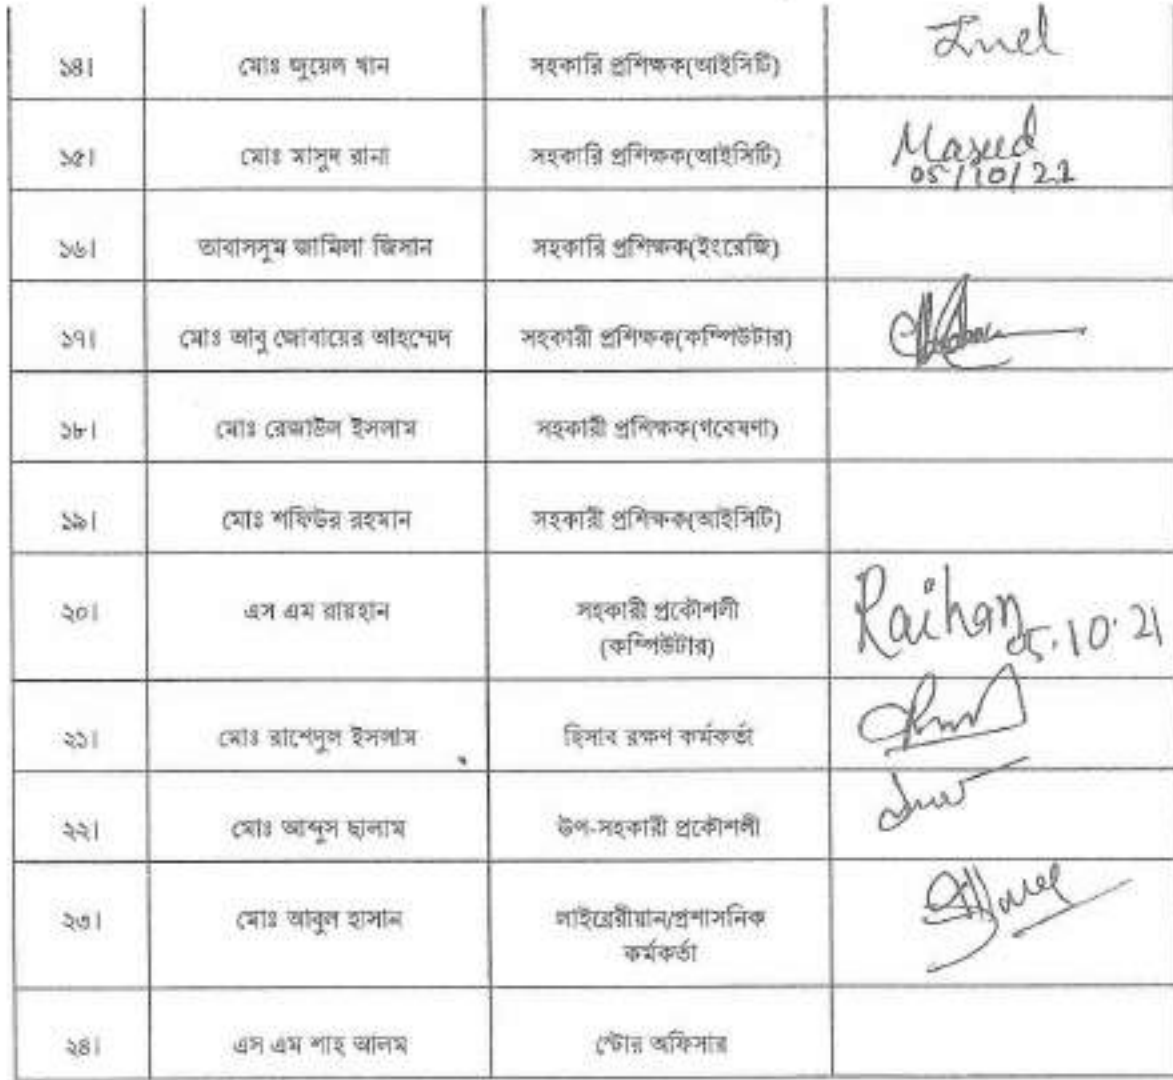 ১৪। মোঃ জুয়েল খান সহকারি প্রশিক্ষক(আইসিটি)
১৫। মোঃ মাসুদ রানা সহকারি প্রশিক্ষক(আইসিটি) Masud
05/10/21
১৬। তাবাসসুম জামিলা জিসান সহকারি প্রশিক্ষক(ইংরেজি)
১৭। মোঃ আবু জোবায়ের আহম্মেদ সহকারী প্রশিক্ষক(কম্পিউটার)
১৮। মোঃ রেজাউল ইসলাম সহকারী প্রশিক্ষক(গবেষণা)
১৯। মোঃ শফিউর রহমান সহকারী প্রশিক্ষক(আইসিটি)
২০। এস এম রায়হান সহকারী প্রকৌশলী Raihan 05.10.21
(কম্পিউটার)
২১। মোঃ রাশেদুল ইসলাম হিসাব রক্ষণ কর্মকর্তা
২২। মোঃ আব্দুস ছালাম উপ-সহকারী প্রকৌশলী
২৩। মোঃ আবুল হাসান লাইব্রেরীয়ান/প্রশাসনিক
কর্মকর্তা
২৪। এস এম শাহ্ আলম স্টোর অফিসার